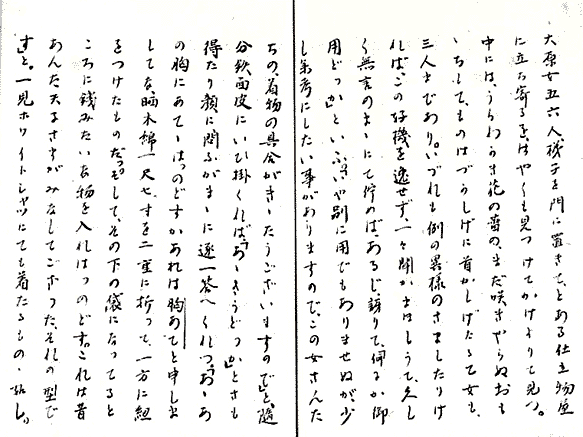 大原女五六人梯子を門に置きて、とある仕立物屋
に立ち寄るをはやくも見つけてかけよりて見つ。
中には、うらわかき花の蕾の、まだ咲きやらぬおも
ゝちして、ものはづかしげに首かしげたる乙女も、
三人まであり。いづれも例の異様のさましたりけ
れば、この好機を逸せず、一々聞かまほしうて、久し
く無言のまゝにて佇めば、あるじ訝りて、何か御
用どつか」といふ。「いや別に用でもありませぬが、少
し参考にしたい事がありますので、この女さんた
ちの、着物の具合がきゝたうございますので」と、随
分鉄面皮にいひ掛くれば、「あゝさうどつか」とさも
得たり顔に問ふがまゝに逐一答へくれつ。「あゝあ
の胸にあてゝはつのどすかあれは胸あてと申しま
してな、晒木綿一尺七、寸を二重に折つて、一方に紐
をつけたものだつせ。そして、その下の袋になつてると
ころに銭みたいな物を入れはつのどす。これは昔
あんた天子さまがみなしてござつた、それの型で
す」と。一見ホワイトシャツにても着たるものゝ如し。